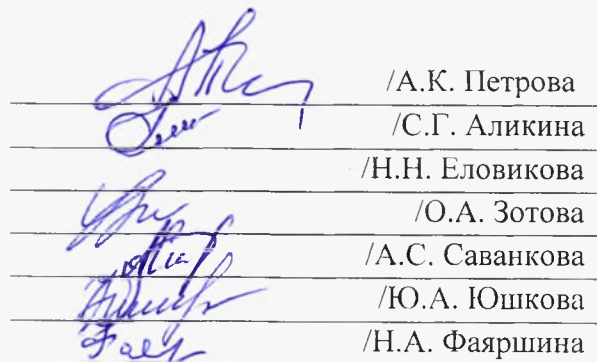 /А.К. Петрова
/С.Г. Аликина
/Н.Н. Еловикова
/О.А. Зотова
/А.С. Саванкова
/Ю.А. Юшкова
/Н.А. Фаяршина